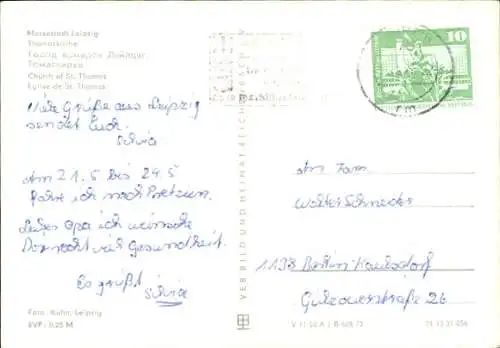 Messestadt Leipzig
Thomaskirche
Город ярмарок Лейпциг
Томаскирхе
Church of St. Thomas
Église de St. Thomas
Viele Grüße aus Leipzig
sendet Euch
Silvia
Am 21.5 bis 24.5
fahre ich nach Pretzien.
Lieber Opa ich wünsche
Dir noch viel Gesundheit.
Es grüßt
Silvia
Foto: Kühn, Leipzig
EVP: 0,25 M
VEB BILD UND HEIMAT REICHENBACH
10
An Fam.
Walter Schneider
1138 Berlin Kaulsdorf
Gülzowerstraße 26